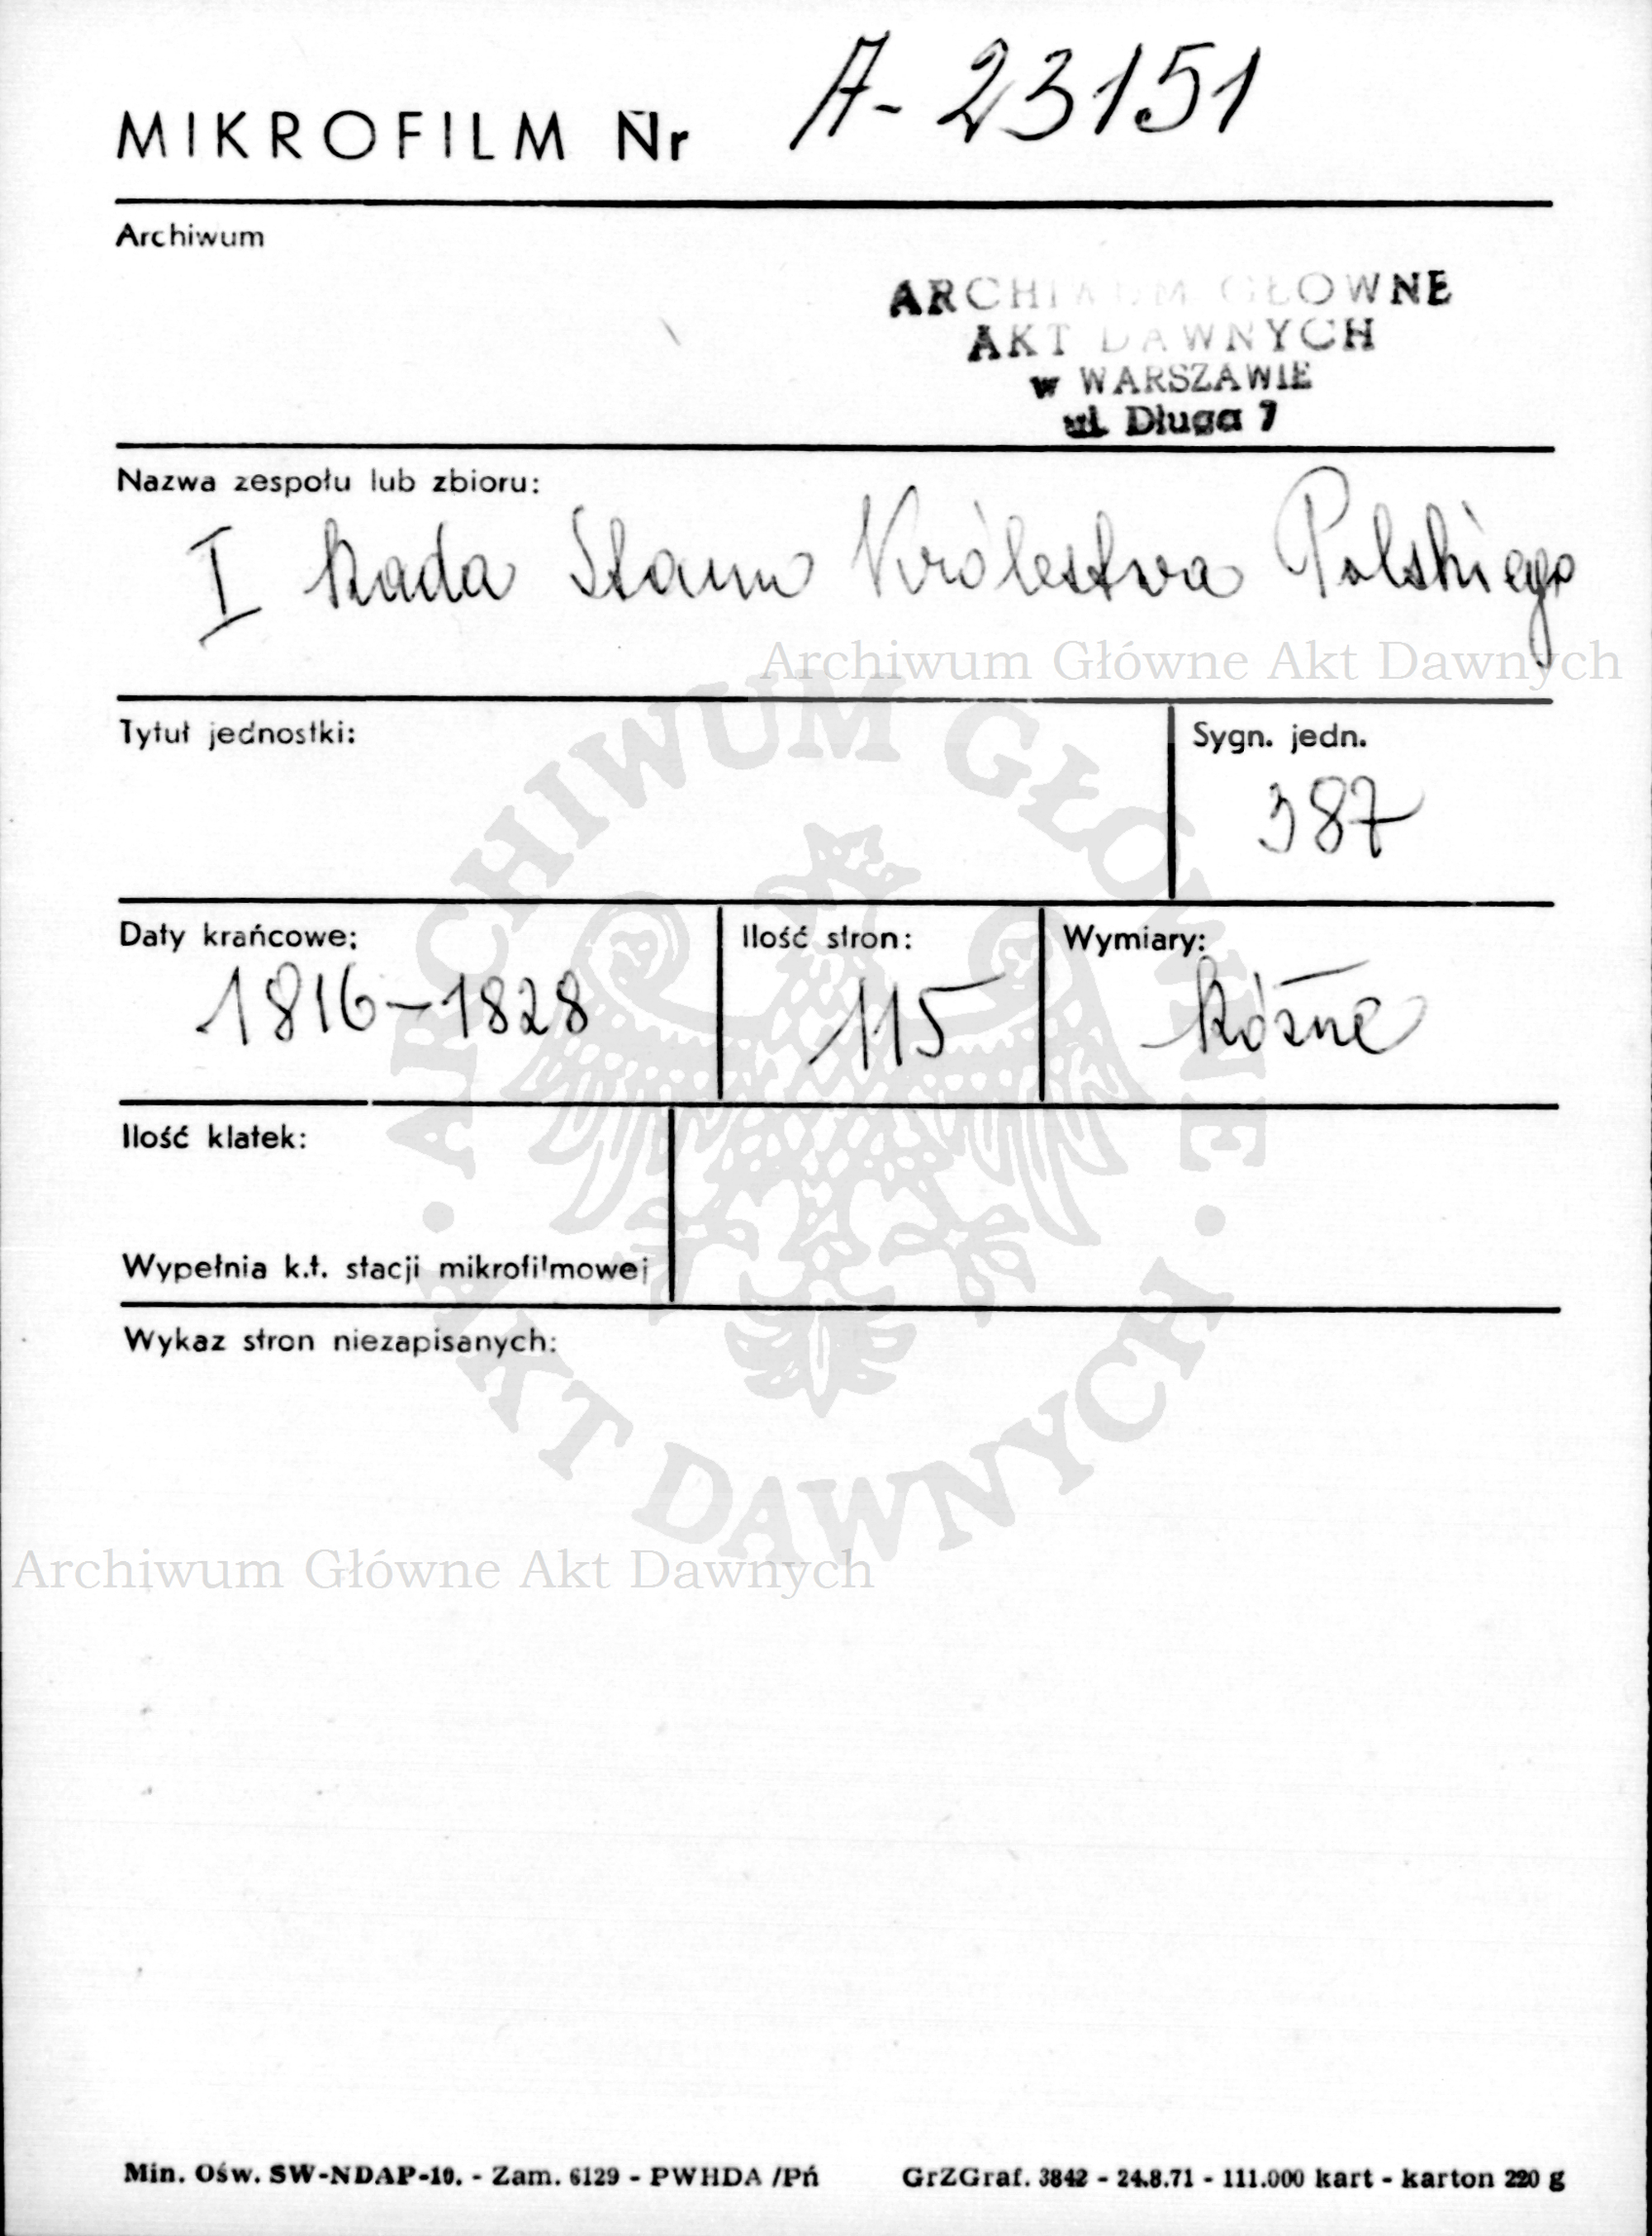 MIKROFILM Nr A-23151
Archiwum
ARCHIWUM GŁOWNE
AKT DAWNYCH
w WARSZAWIE
ul. Długa 7
Nazwa zespołu lub zbioru:
I Rada Stanu Królestwa Polskiego
Archiwum Główne Akt Dawnych
Tytuł jednostki:
Sygn. jedn.
387
Daty krańcowe:
1816-1828
Ilość stron:
115
Wymiary:
Różne
Ilość klatek:
Wypełnia k.t. stacji mikrofilmowej
Wykaz stron niezapisanych:
ARCHIWUM GŁÓWNE
AKT DAWNYCH
Archiwum Główne Akt Dawnych
Min. Ośw. SW-NDAP-10. - Zam. 6129 - PWHDA /Pń GrZGraf. 3842 - 24.8.71 - 111.000 kart - karton 220 g